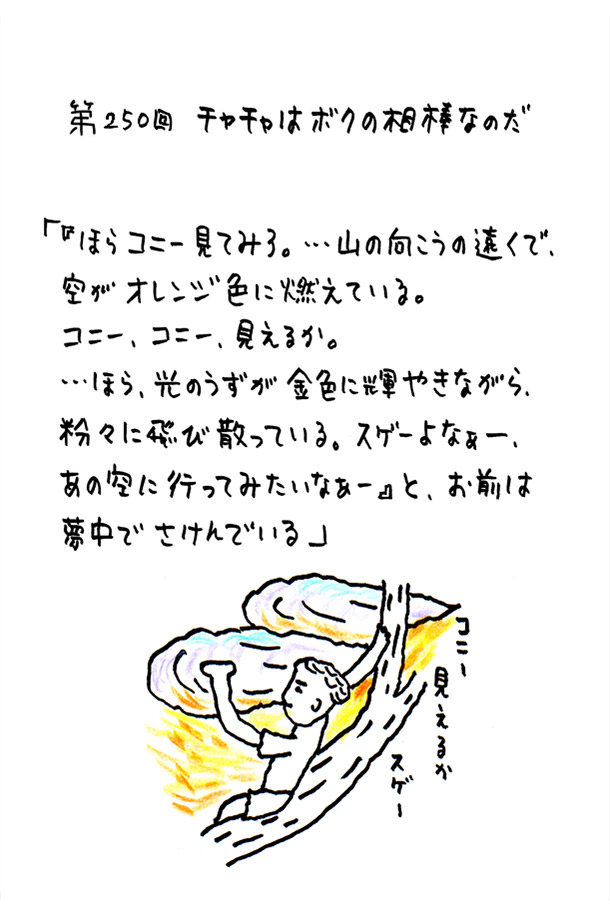 第250回 チャチャはボクの相棒なのだ
「『ほらコニー見てみろ。…山の向こうの遠くで、
空がオレンジ色に燃えている。
コニー、コニー、見えるか。
…ほら、光のうずが金色に輝やきながら、
粉々に飛び散っている。スゲーよなぁー、
あの空に行ってみたいなぁー』と、お前は
夢中でさけんでいる」
コニー
見えるか
スゲー